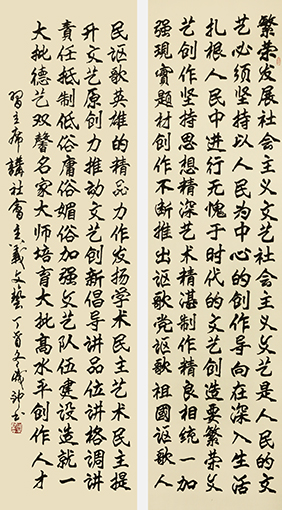 繁荣发展社会主义文艺社会主义文艺是人民的文
艺必须坚持以人民为中心的创作导向在深入生活
扎根人民中进行无愧于时代的文艺创造要繁荣文
艺创作坚持思想精深艺术精湛制作精良相统一加
强现實题材创作不断推出讴歌党讴歌祖國讴歌人
民讴歌英雄的精品力作发扬学术民主艺术民主提
升文艺原创力推动文艺创新倡导讲品位讲格调讲
责任抵制低俗庸俗媚俗加强文艺队伍建设造就一
大批德艺双馨名家大师培育大批高水平创作人才
習主席講社會主義文藝丁酉冬